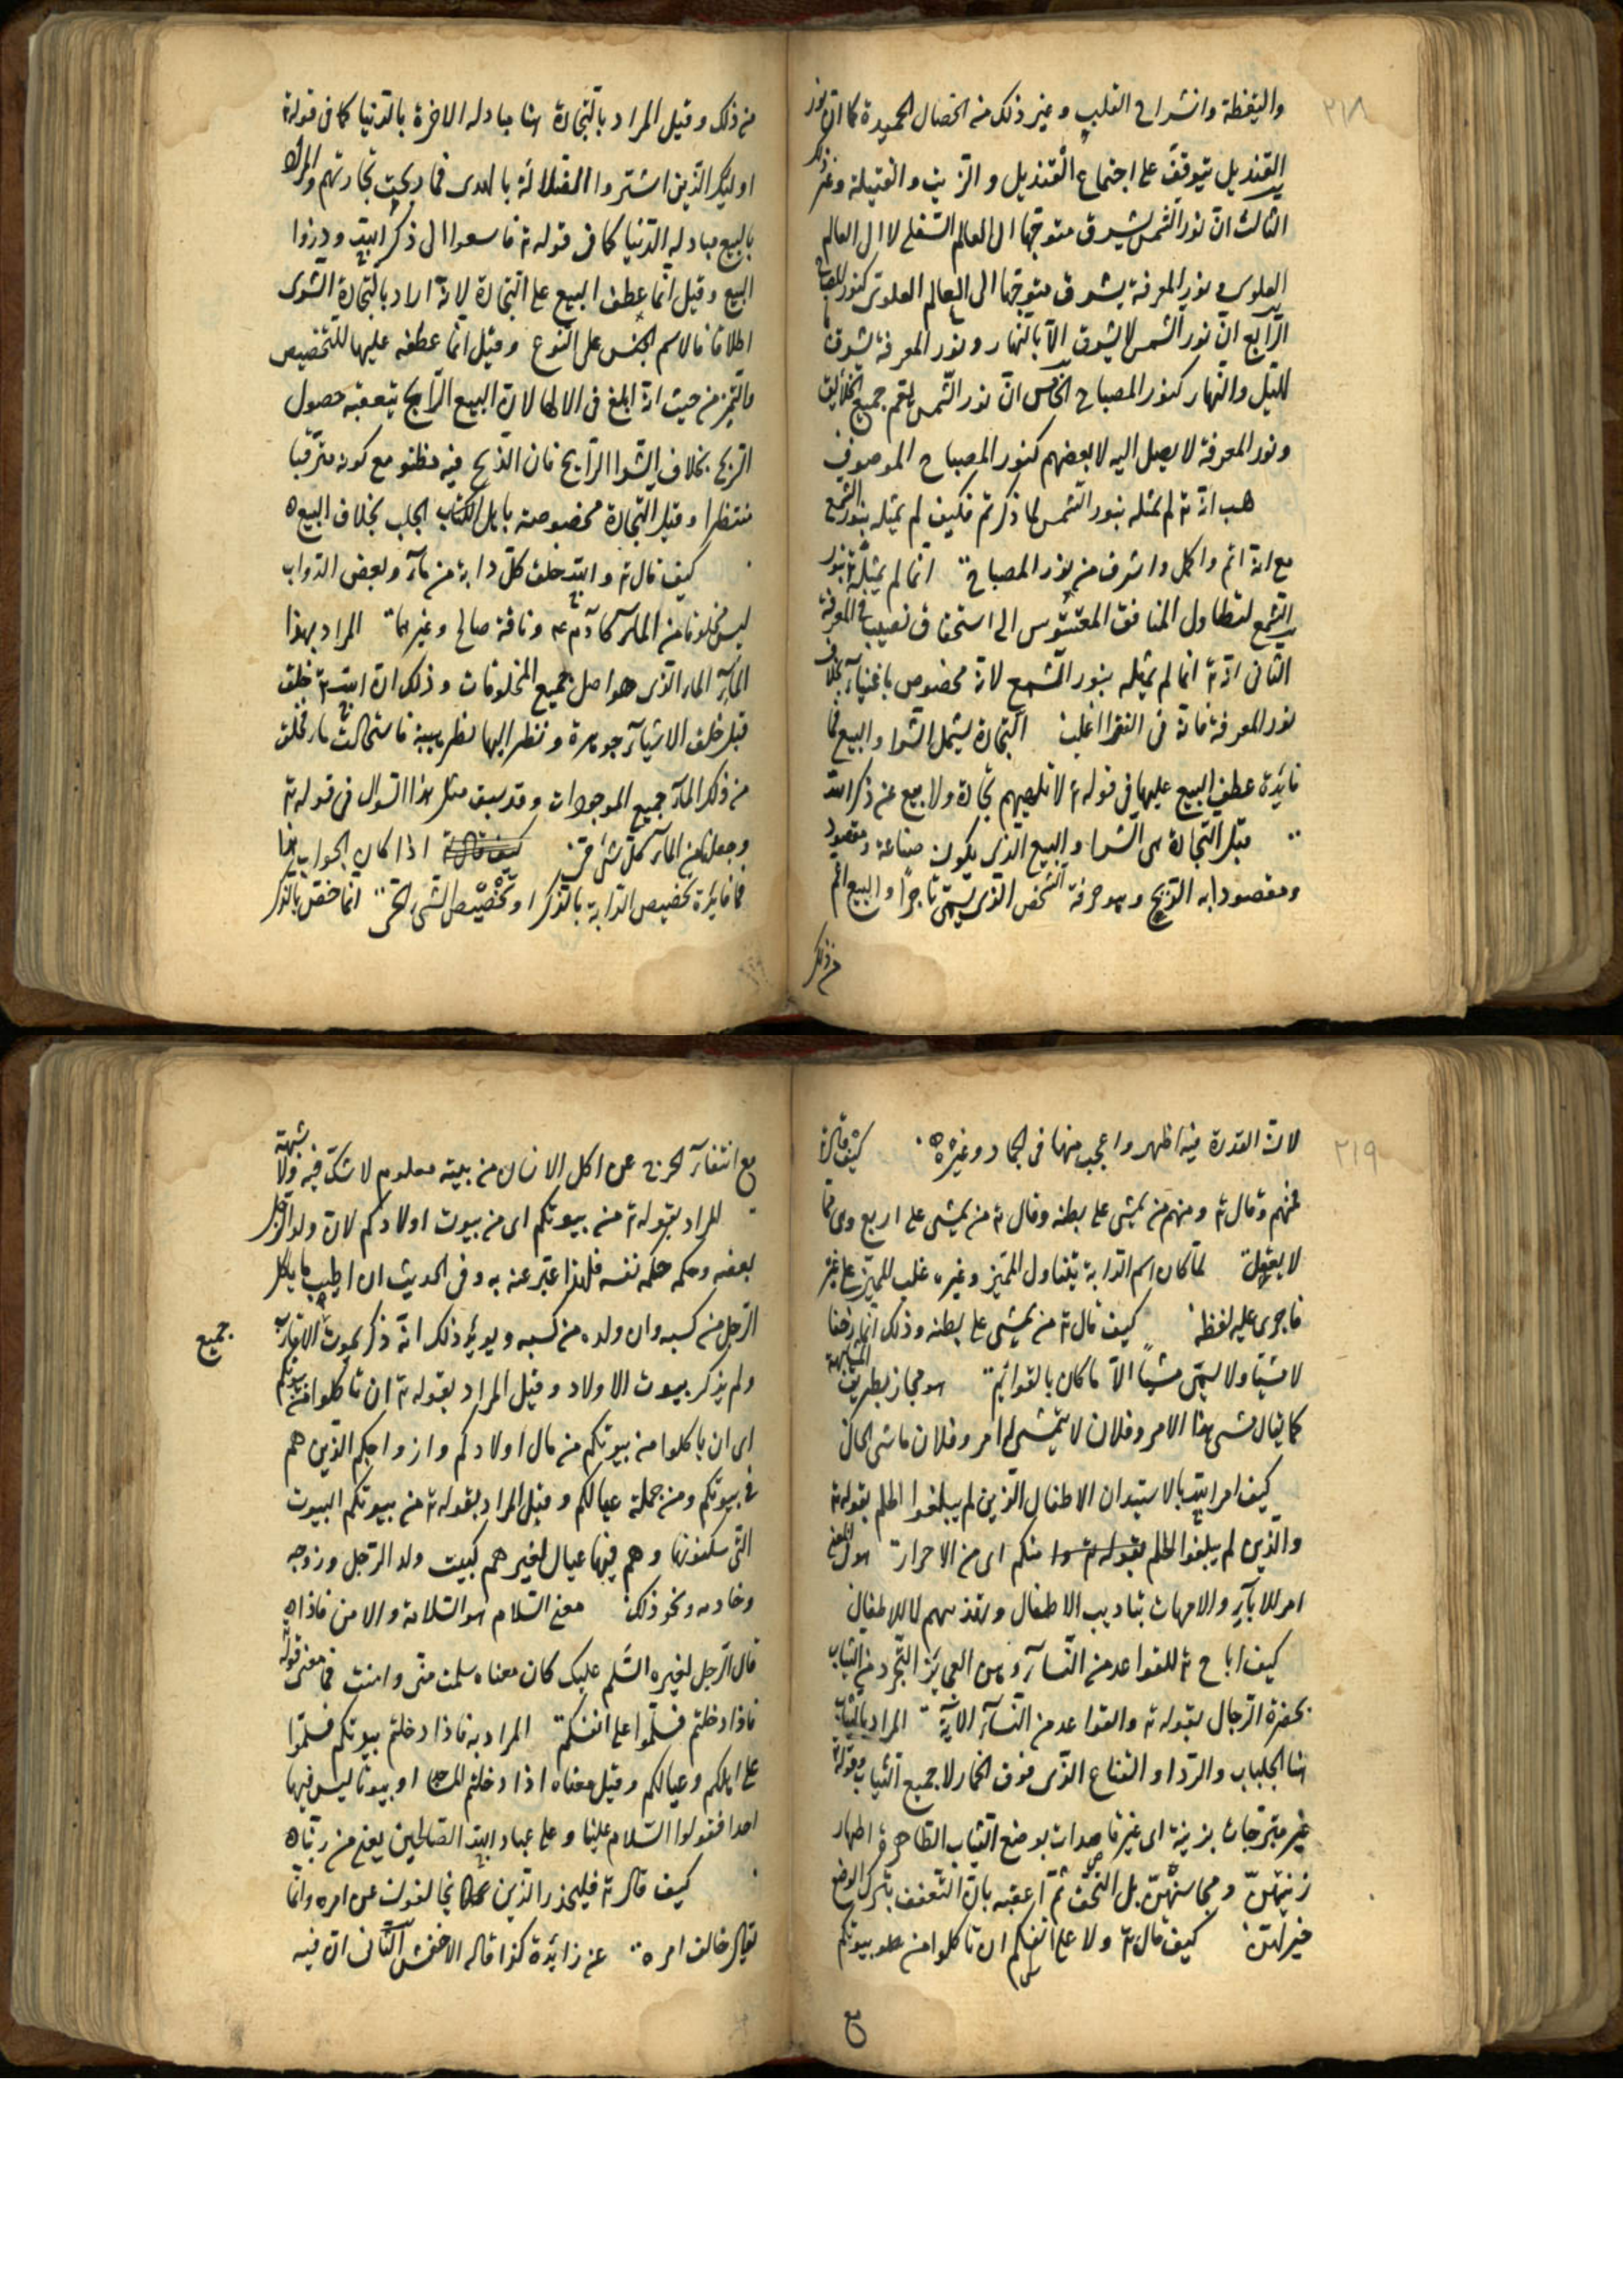 ٢١٨
واليقظة وانشراح القلب وغير ذلك من الخصال الحميدة كما ان نور
القنديل يتوقف على اجتماع القنديل والزيت والفتيلة وغير ذلك
الثالث ان نور الشمس يشرق متوجها الى العالم السفلى لا الى العالم
العلوى ونور المعرفة يشرق متوجها الى العالم العلوى كنور المصباح
الرابع ان نور الشمس لا يشرق الا بالنهار ونور المعرفة يشرق
بالليل والنهار كنور المصباح الخامس ان نور الشمس يعم جميع الخلايق
ونور المعرفة لا يصل اليه الا بعضهم كنور المصباح الموصوف
هب انه تع لم يمثله بنور الشمس لما ذكرتم فكيف لم يمثله بنور الشمع
مع انه اتم واكمل واشرف من نور المصباح انما لم يمثله تع بنور
الشمع لتطاول المنافق المغشوش الى استحقاق نصيب فى المعرفة
الثانى انه تع انما لم يمثله بنور الشمع لانه مخصوص باغنيآء بخلاف
نور المعرفة فانه فى الفقرا اغلب التجارة يشمل الشرا والبيع فما
فايدة عطف البيع عليها فى قوله تع لا تلهيهم تجارة ولا بيع عن ذكر الله
قيل التجارة هى الشرا والبيع الذى يكون صناعة ومقصود
ومقصودا به الربح وهو حرفة الشخص الذى يسمى تاجرا والبيع اعم
من ذلك
من ذلك وقيل المراد بالتجارة هنا مبادله الاخرة بالدنيا كما فى قوله تع
اوليك الذين اشتروا الضلالة بالهدى فما ربحت تجارتهم والمراد
بالبيع مبادله الدنيا كما فى قوله تع فاسعوا الى ذكر الله وذروا
البيع وقيل انما عطف البيع على التجارة لانه اراد بالتجارة الشرى
اطلاقا لاسم الجنس على النوع وقيل انما عطفه عليها للتخصيص
والتميز من حيث انه ابلغ فى الالها لان البيع الرابح يتعقبه حصول
الربح بخلاف الشرا الرابح فان الذبح فيه مظنو مع كونه مترقبا
منتظرا وقيل التجارة مخصوصة باهل الجلب بخلاف البيع
كيف قال تع والله خلق كل دابة من مآء وبعض الدواب
ليس مخلوقا من المآء كآدم عم وناقة صالح وغيرهما المراد بهذا
المآء المآء الذى هو اصل جميع المخلوقات وذلك ان الله تع خلق
قبل خلق الاشيآء جوهرة ونظر اليها نظر هيبة فاستحالت مآء فخلق
من ذلك المآء جميع الموجودات وقد سبق مثل هذا السوال فى قوله تع
وجعلنا من المآء كل شئ حى اذا كان الجواب هذا
فما فايدة تخصيص الدابة بالذكر او تخصيص الشئ الحى انما خص بالذكر
٢١٩
لان القدرة فيه اظهر واعجب منها فى الجماد وغيره كيف قال تع
فمنهم وقال تع ومنهم من يمشى على بطنه وقال تع من يمشى على اربع وهى مما
لا يعقل لما كان اسم الدابة يتناول المميز وغيره غلب المميز على غيره
فاجرى عليه لفظه كيف قال تع من يمشى على بطنه وذلك انما زحفا
لا مشيا ولا يسمى مشيا الا ما كان بالقوائم هو مجاز بطريق المشابهة
كما يقال مشى هذا الامر وفلان لا يتمشى له امر وفلان ماشى الحال
كيف امر الله بالاستيذان الاطفال الذين لم يبلغوا الحلم بقوله تع
والذين لم يبلغوا الحلم منكم اى من الاحرار هو فى المعنى
امر للابآء والامهات بتاديب الاطفال وتهذيبهم لا للاطفال
كيف اباح تع للقواعد من النسآء وهن العجايز التجرد من الثياب
بحضرة الرجال بقوله تع والقواعد من النسآء الاية المراد بالثياب
هنا الجلباب والردا والقناع الذى فوق الخمار لا جميع الثياب وقوله تع
غير متبرجات بزينة اى غير قاصدات بوضع الثياب الظاهرة اظهار
زينتهن ومحاسنهن بل التخفف ثم اعقبه بان التعفف بترك الوضع
خير لهن كيف قال تع ولا على انفسكم ان تاكلوا من بيوتكم
مع
مع انتفآء الحرج عن اكل الانسان من بيته معلوم لا شك فيه ولا شبهة
المراد بقوله تع من بيوتكم اى من بيوت اولادكم لان ولد الرجل
بعضه وحكمه حكم نفسه فلهذا عبر عنه به وفى الحديث ان اطيب ما ياكل
الرجل من كسبه وان ولده من كسبه ويويد ذلك انه ذكر بيوت الاقارب
جميع
ولم يذكر بيوت الاولاد وقيل المراد بقوله تع ان تاكلوا من بيوتكم
اى ان ياكلوا من بيوتكم من مال اولادكم وازواجكم الذين هم
فى بيوتكم ومن جملة عيالكم وقيل المراد بقوله تع من بيوتكم البيوت
التى سكنونها وهم فيها عيال لغيرهم كبيت ولد الرجل وزوجه
وخادمه ونحو ذلك معنى السلام هو السلامة والامن فاذا
قال الرجل لغيره السلم عليك كان معناه سلمت منى وامنت فما معنى قوله
فاذا دخلتم فسلموا على انفسكم المراد به فاذا دخلتم بيوتكم فسلموا
على اهلكم وعيالكم وقيل معناه اذا دخلتم او بيوتا ليس فيها
احد فقولوا السلام علينا وعلى عباد الله الصالحين يعنى من ربنا
كيف قال تع فليحذر الذين يخالفون عن امره وانما
يقال خالف امره عن زائدة كذا قاله الاخفش الثانى ان فيه